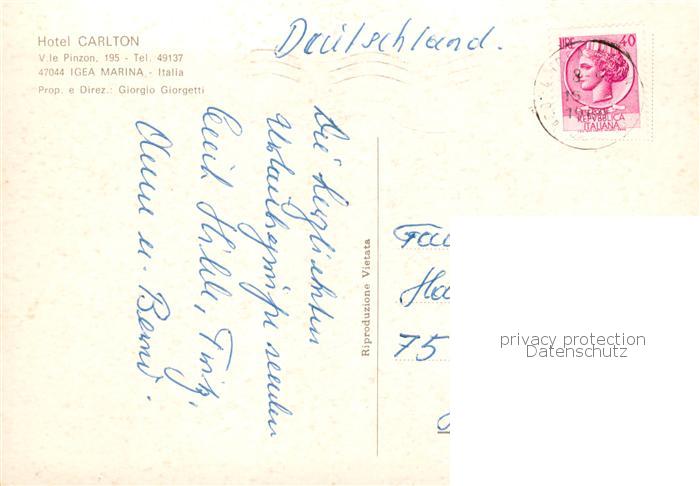 Hotel CARLTON
V.le Pinzon, 195 - Tel. 49137
47044 IGEA MARINA - Italia
Prop. e Direz.: Giorgio Giorgetti
Deutschland.
LIRE 40
REPVBBLICA
ITALIANA
Die herzlichsten
Urlaubsgrüße senden
Hilde, Fritz,
u. Bernd.
Riproduzione Vietata
75
privacy protection
Datenschutz